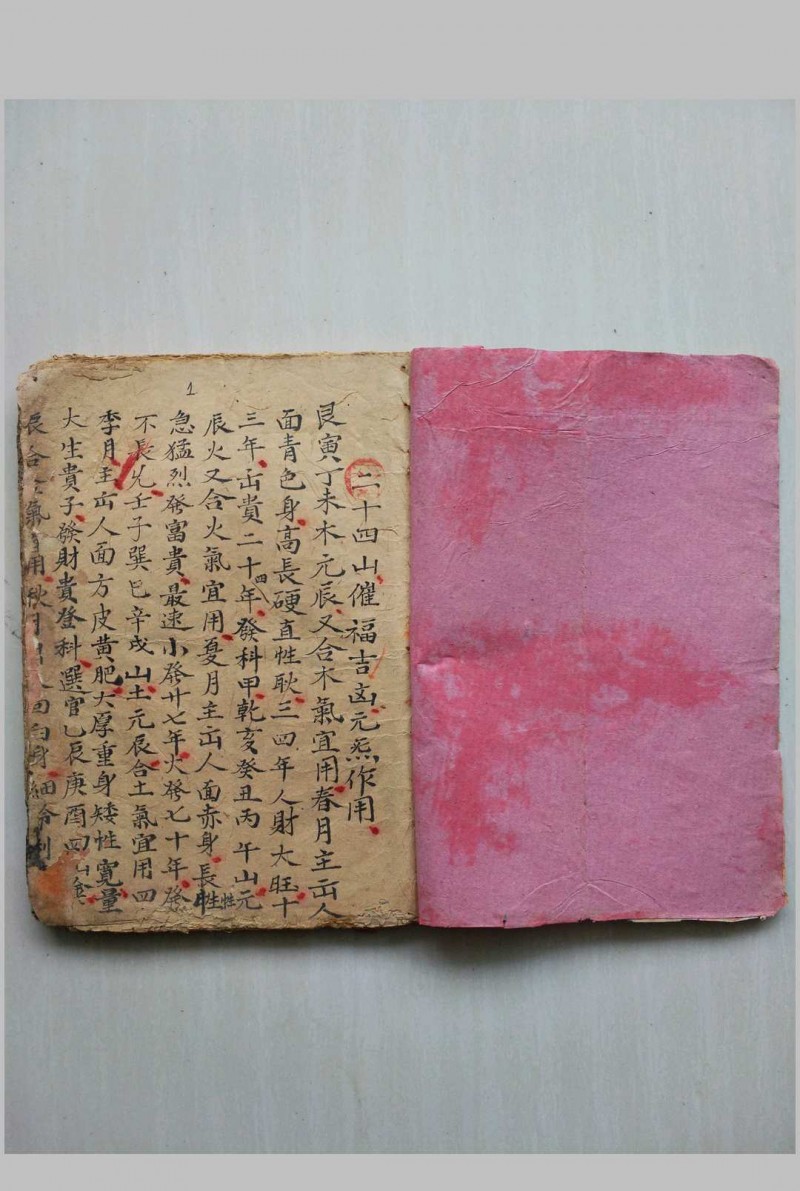 1
二十四山催福吉凶元炁作用
艮寅丁未木元辰又合木氣宜用春月主出人
面青色身高長硬直性耿三四年人財大旺十
三年出貴二十四年發科甲乾亥癸丑丙午山元
辰火又合火氣宜用夏月主出人面赤身長性
急猛烈發富貴最速小發廿七年大發七十年發
不長久壬子巽巳辛戌山土元辰合土氣宜用四
季月主出人面方皮黃肥大厚重身矮性寬量
大生貴子發財貴登科選官乙辰庚酉四山金
辰合 氣 用秋月 人面白身細